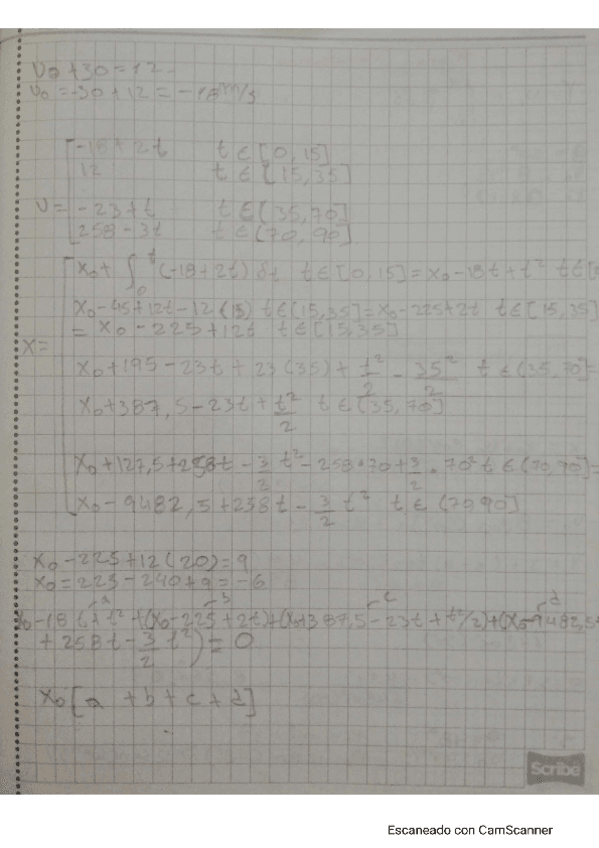 v₀ + 30 = 12
v₀ = -30 + 12 = -18 m/s
-18 + 2t t ∈ [0, 15]
12 t ∈ [15, 35]
v = -23 + t t ∈ (35, 70]
258 - 3t t ∈ (70, 90]
x₀ + ∫₀ᵗ (-18 + 2t) dt t ∈ [0, 15] = x₀ - 18t + t² t ∈ [0
x₀ - 45 + 12t - 12(15) t ∈ [15, 35] = x₀ - 225 + 2t t ∈ [15, 35]
= x₀ - 225 + 12t t ∈ [15, 35]
x =
x₀ + 195 - 23t + 23(35) + t²/2 - 35²/2 t ∈ (35, 70] =
x₀ + 387,5 - 23t + t²/2 t ∈ (35, 70]
x₀ + 127,5 + 258t - 3/2 t² - 258·70 + 3/2 · 70² t ∈ (70, 90] =
x₀ - 9482,5 + 258t - 3/2 t² t ∈ (70, 90]
x₀ - 225 + 12(20) = 9
x₀ = 225 - 240 + 9 = -6
a b c d
x₀ - 18t + t² + (x₀ - 225 + 2t) + (x₀ + 387,5 - 23t + t²/2) + (x₀ - 9482,5
+ 258t - 3/2 t²) = 0
x₀ [a + b + c + d]
Scribe
Escaneado con CamScanner